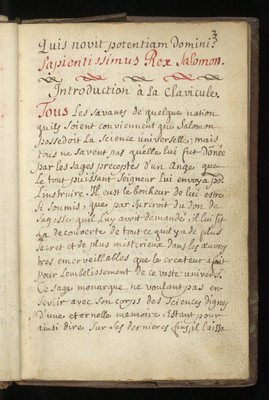 3
Quis novit potentiam Domini?
Sapientissimus Rex Salomon.
Introduction à la Clavicule.
Tous Les savants de quelque nation
quils soient conviennent que Salomon
possedoit La science universelle; mais
tous ne savent pas qu'elle lui fut donée
par les sages preceptes d'un Ange, que
Le tout puissant seigneur lui envoya po.
L'instruire. Il eust le bonheur de lui estre
si soumis, que par surcroit du don de
sagesse, quil Luy avoit demandé, il lui fit
La decouverte de tout ce quil y a de plus
secret et de plus misterieux dans les œuvres
tres emerveillables que le createur a fait
pour Lembelissement de ce vaste univers.
Ce sage monarque ne voulant pas en-
sevelir avec son corps des sciences dignes
d'une eternelle memoire. Estant pour
ainsi dire sur ses dernieres fins, il laisse